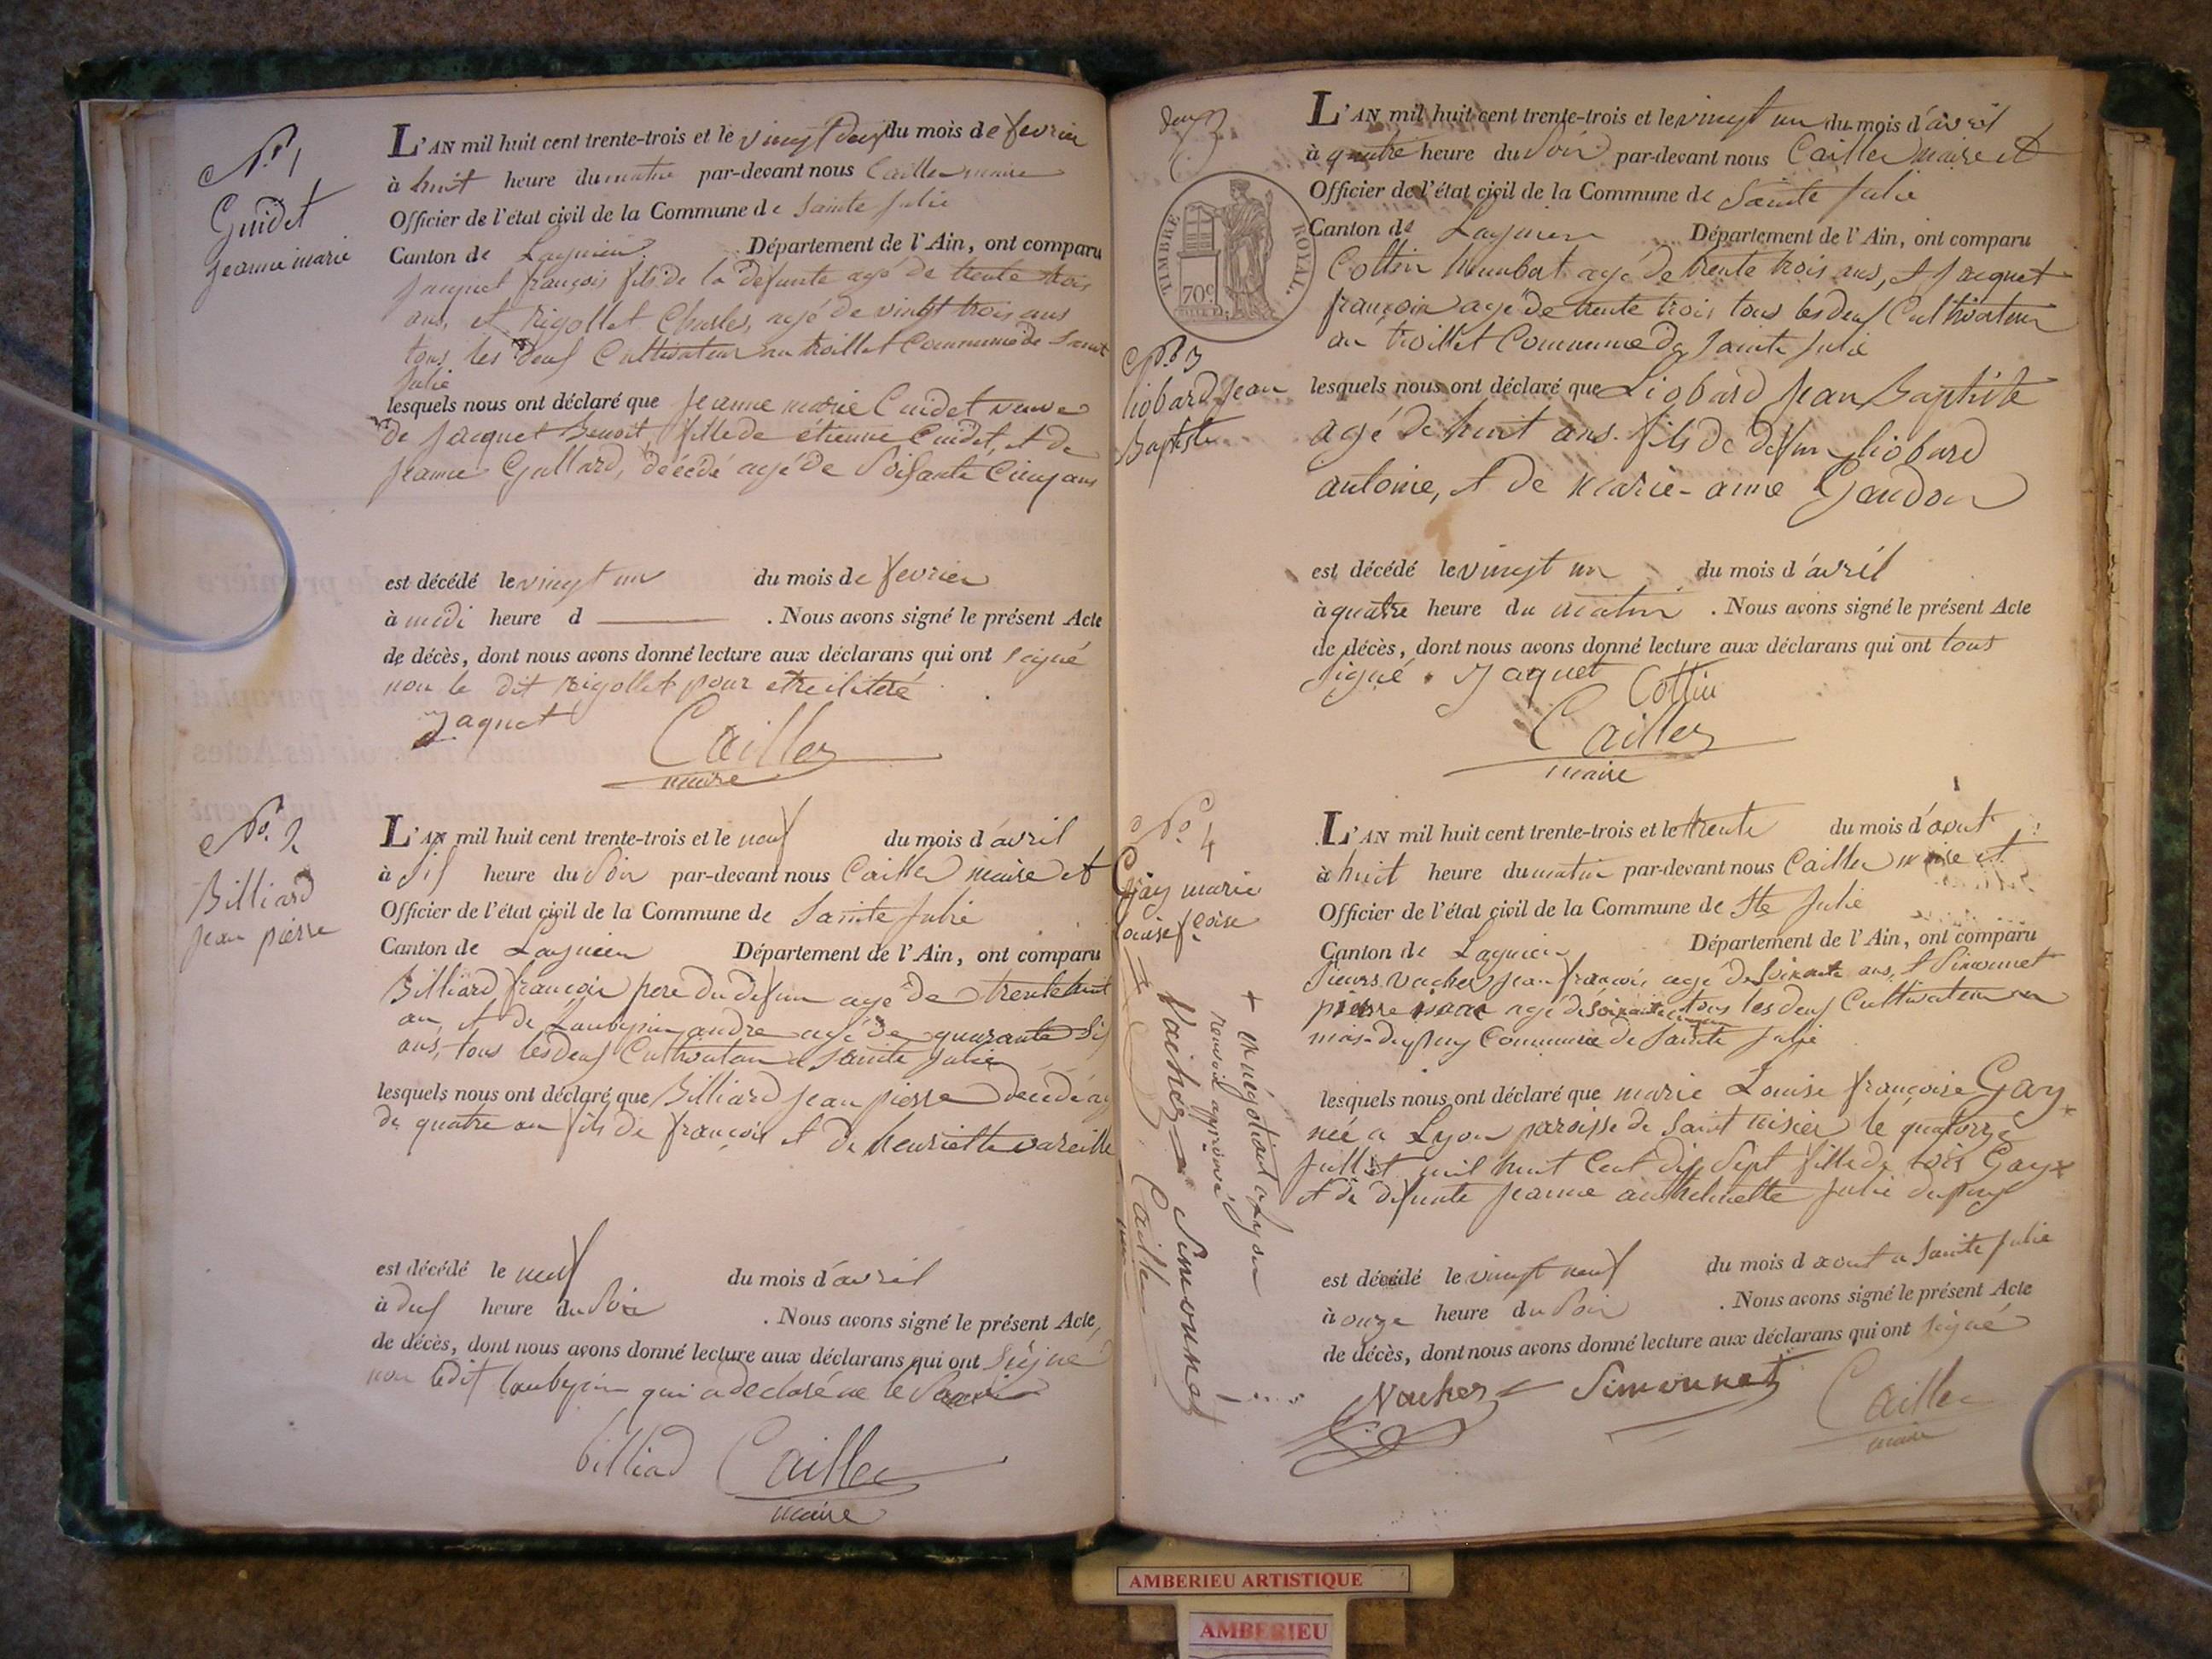 N.° 1
Guidet
jeanne marie
L'AN mil huit cent trente-trois et le vingt deux du mois de fevrier
à huit heure du matin par-devant nous Cailler maire
Officier de l'état civil de la Commune de Sainte Julie
Canton de Lagnieu Département de l'Ain, ont comparu
jacquet françois fils de la defunte agé de trente trois
ans, et Rigollet Charles, agé de vingt trois ans
tous les deux Cultivateur au troillet Commune de Saint
Julie
lesquels nous ont déclaré que jeanne marie Guidet veuve
de jacquet Benoit, fille de étienne Guidet, et de
jeanne Gallard, décédé agé de Soisante Cinq ans
est décédé le vingt un du mois de fevrier
à midi heure d . Nous avons signé le présent Acte
de décès, dont nous avons donné lecture aux déclarans qui ont signé
non le dit Rigollet pour etre iliteré
Jaquet Cailler
maire
N.° 2
Billiard
jean pierre
L'AN mil huit cent trente-trois et le neuf du mois d'avril
à Six heure du Soir par-devant nous Cailler maire et
Officier de l'état civil de la Commune de Sainte Julie
Canton de Lagnieu Département de l'Ain, ont comparu
Billiard françois pere du defun agé de trente huit
an, et de Laubepin andre agé de quarante Six
ans, tous les deux Cultivateur a Sainte Julie
lesquels nous ont déclaré que Billiard jean pierre decedé ag
de quatre an fils de françois et de henriette vareille
est décédé le neuf du mois d'avril
à deux heure du Soir . Nous avons signé le présent Acte,
de décès, dont nous avons donné lecture aux déclarans qui ont Signé
non ledit Laubepin qui a declaré ne le Savoir
billiad Cailler
maire
TIMBRE ROYAL.
70c
N.° 3
liobard jean
Baptiste
L'AN mil huit cent trente-trois et le vingt un du mois d'avril
à quatre heure du Soir par-devant nous Cailler maire et
Officier de l'état civil de la Commune de Sainte Julie
Canton de Lagnieu Département de l'Ain, ont comparu
Cottin humbert agé de trente trois ans, et jacquet
françois agé de trente trois tous les deux Cultivateur
au troillet Commune de Sainte Julie
lesquels nous ont déclaré que Liobard jean Baptiste
agé de huit ans. fils de defun liobard
antoine, et de marie-anne Gaudon
est décédé le vingt un du mois d'avril
à quatre heure du matin . Nous avons signé le présent Acte
de décès, dont nous avons donné lecture aux déclarans qui ont tous
signé. Jaquet Cottin
Cailler
maire
N.° 4
Gay marie
louise f.çoise
+ en négotiant a Lyon
renvoi approuvé
Vacher Simounet
Cailler
L'AN mil huit cent trente-trois et le trente du mois d'aout
à huit heure du matin par-devant nous Cailler maire et
Officier de l'état civil de la Commune de Ste Julie
Canton de Lagnieu Département de l'Ain, ont comparu
Sieurs Vacher jean françois agé de Soixante ans, et Simounet
pierre agé de soixante cinq tous les deux Cultivateur
Commune de Sainte Julie
lesquels nous ont déclaré que marie Louise françoise Gay
née a Lyon paroisse de Saint nisier le quatorze
juillet mil huit Cent dix Sept fille de Gay +
et de defunte jeanne anthelmette julie dupuy
est décédé le vingt neuf du mois d aout a Sainte Julie
à onze heure du Soir . Nous avons signé le présent Acte
de décès, dont nous avons donné lecture aux déclarans qui ont signé
Vacher Simounet Cailler
maire
AMBERIEU ARTISTIQUE
AMBERIEU